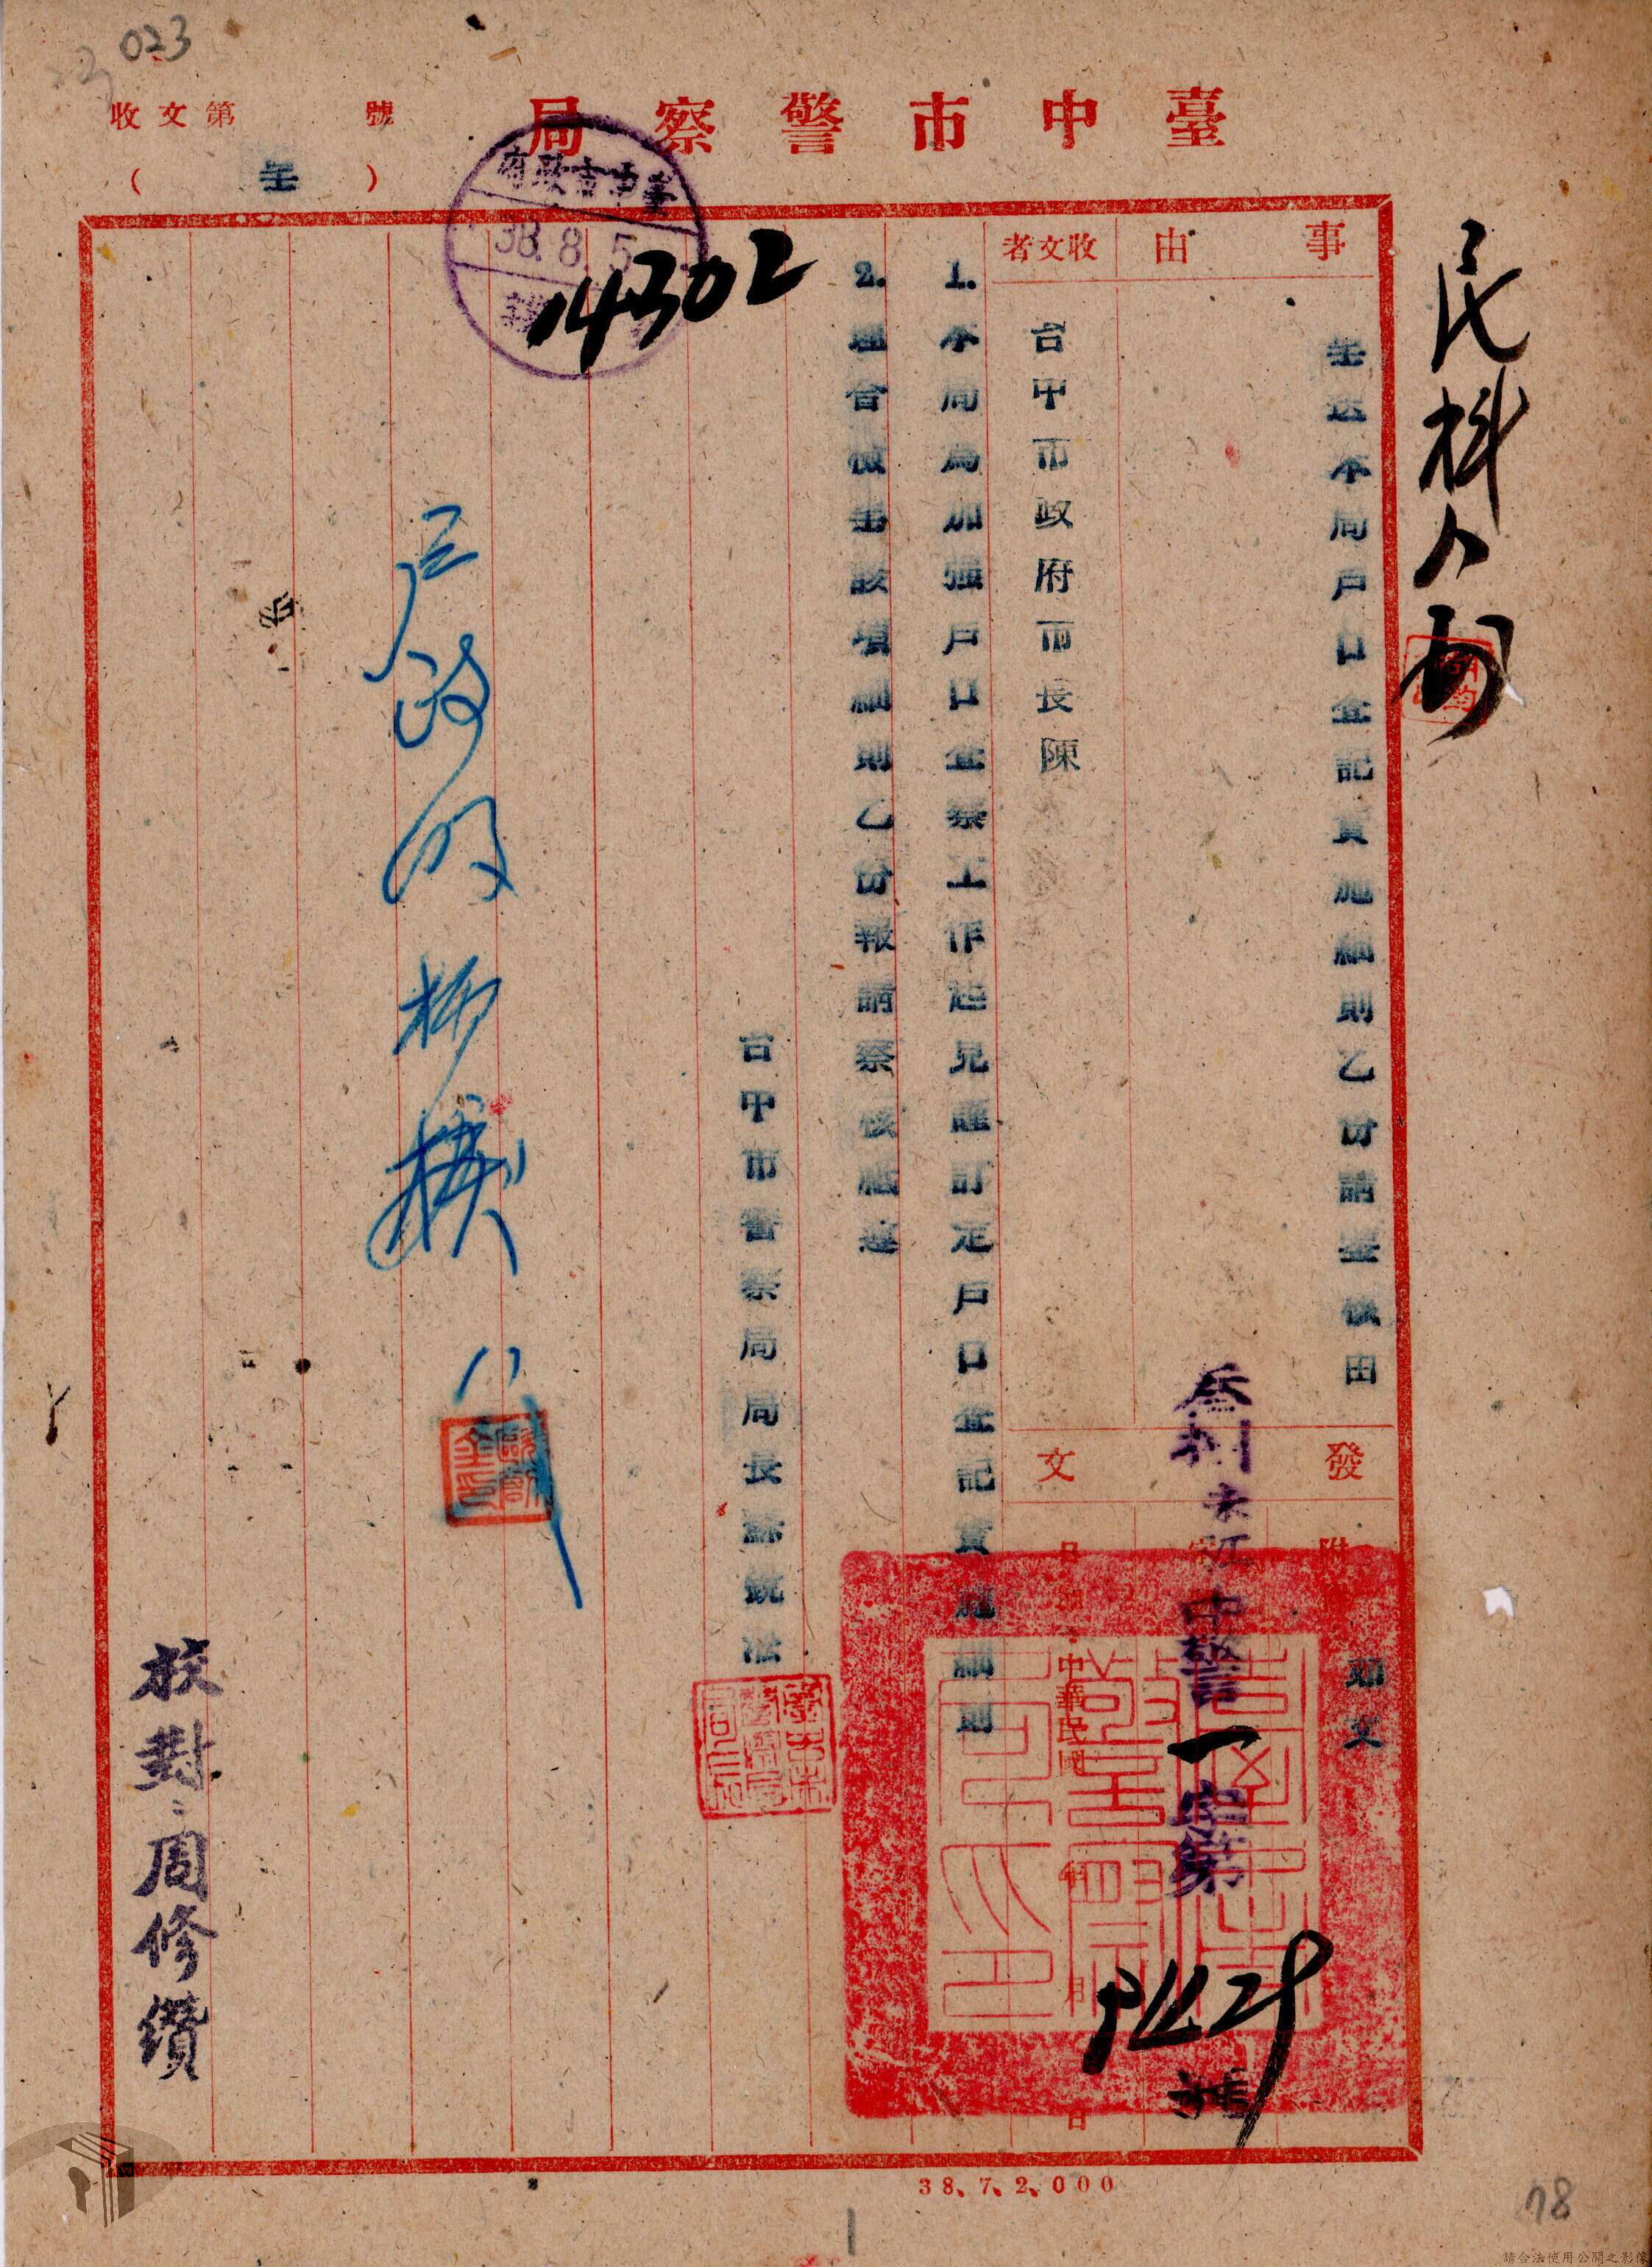 023
臺中市警察局
收文第　號
（呈）
事由
呈送本局戶口查記實施細則乙份請鑒核由
收文者
台中市政府市長陳
1.本局為加強戶口查察工作起見謹訂定戶口查記實施細則
2.理合檢呈該項細則乙份報請察核祗遵
台中市警察局局長蘇
發文
附
如文
叁捌未江中警一字第
號
中華民國　年　月　日
臺中市政府
38.8.5
14302
民
戶政
校對：周修纘
38、7、2、000
78
請合法使用公開之影像